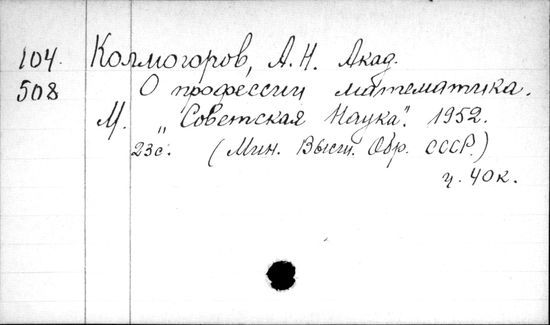 104. Колмогоров, А.Н. Акад.
508 О профессии математика.
М. „Советская Наука". 1952.
23с. (Мин. Высш. Обр. СССР.)
ц. 40к.